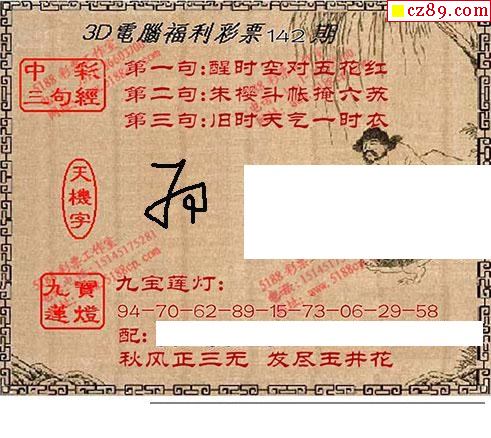 cz89.com
3D電腦福利彩票142期
中彩
三句經
第一句:醒时空对五花红
第二句:朱樱斗帐掩六苏
第三句:旧时天气一时衣
天機字
九寶
蓮燈
九宝莲灯:
94-70-62-89-15-73-06-29-58
配:
秋风正三无 发尽玉井花